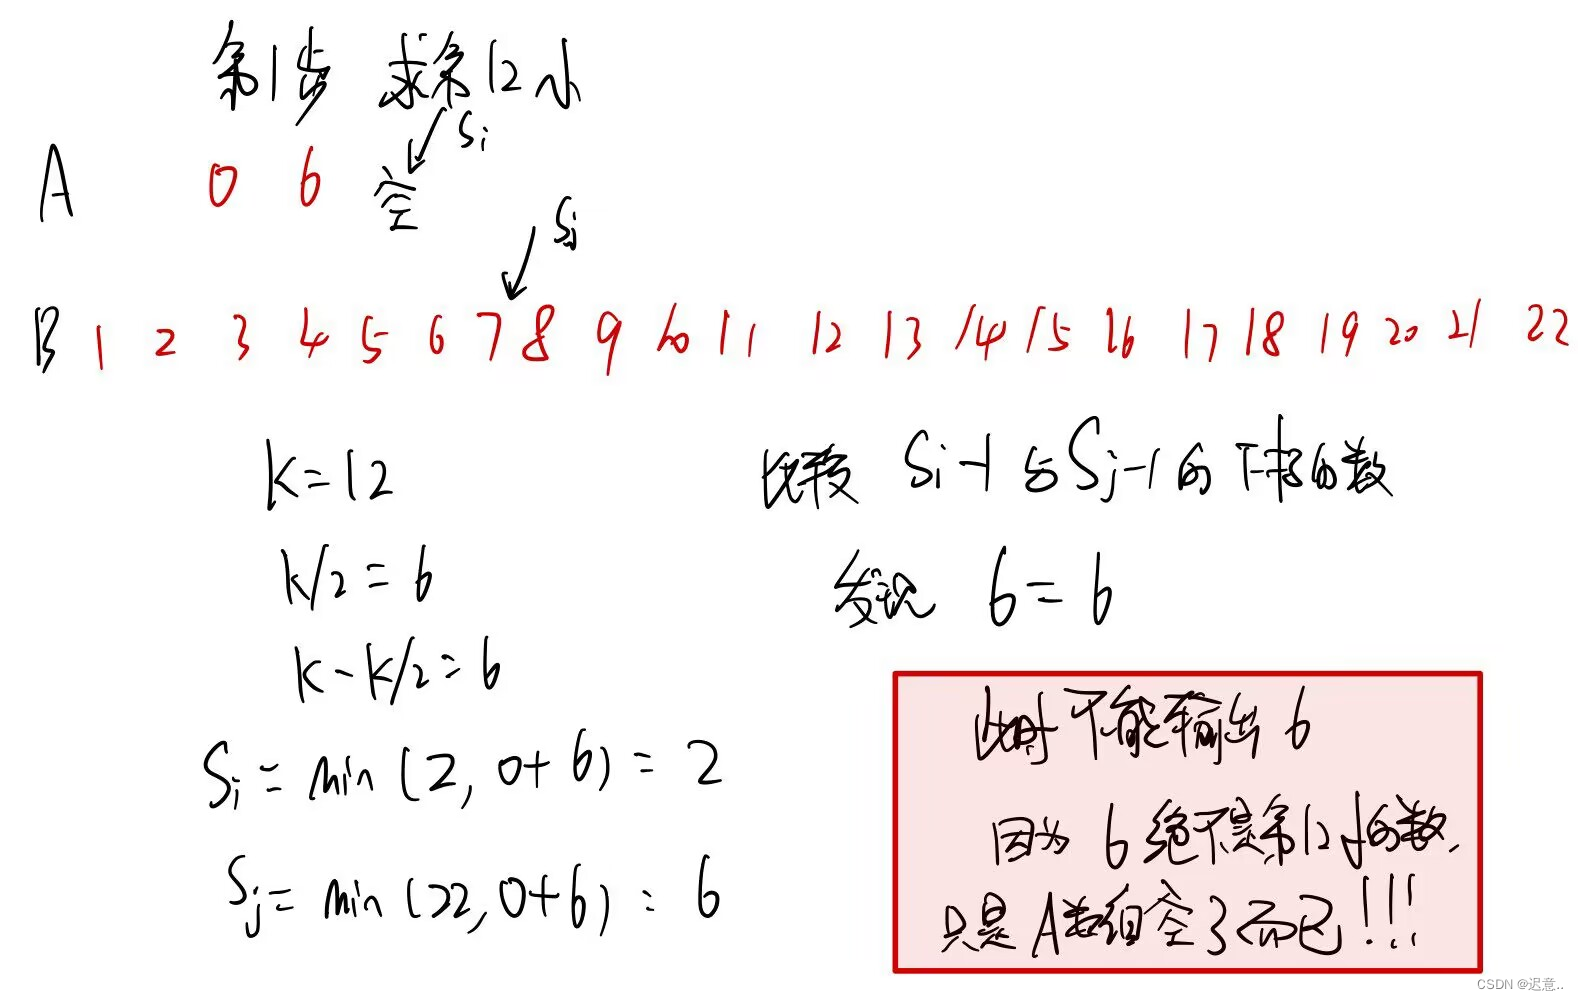 第1步 求第12小
Si
A 0 6 空
Sj
B 1 2 3 4 5 6 7 8 9 10 11 12 13 14 15 16 17 18 19 20 21 22
K=12
k/2=6
K-K/2=6
Si=min(2,0+6)=2
Sj=min(22,0+6)=6
比较 Si-1与Sj-1的下标的数
发现 6=6
此时不能输出6
因为6绝不是第12小的数,
只是A数组空了而已!!!
CSDN @迟意..